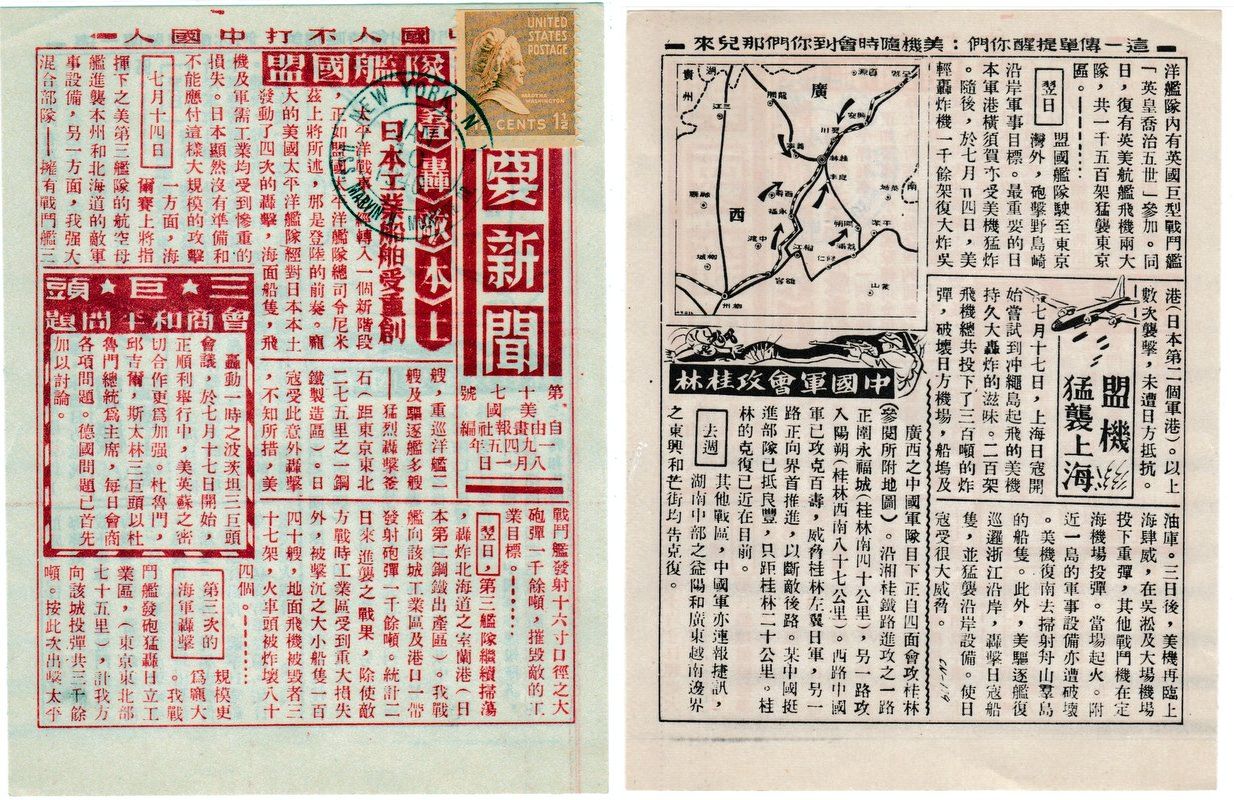 中國人不打中國人
要新聞
第十七號
美國
自由畫報社編
一九四五年
八月一日
盟國艦隊
轟敵本土
日本工業船舶受重創
平洋戰爭
轉入一個新階段
，正如盟國太平洋艦隊總司令尼米
茲上將所述，那是登陸的前奏。龐
大的美國太平洋艦隊經對日本本土
發動了四次的轟擊，海面船隻，飛
機及軍需工業均受到慘重的
損失。日本顯然沒有準備和
不能應付這樣大規模的攻擊
。
七月十四日
一方面，海
爾賽上將指
揮下之美第三艦隊的航空母
艦進襲本州和北海道的敵軍
事設備，另一方面，我强大
混合部隊——擁有戰鬥艦三
艘，重巡洋艦二
艘及驅逐艦多艘
——猛烈轟擊釜
石（距東京東北
二七五里之一鋼
鐵製造區）。日
寇受此意外轟擊
，不知所措，美
戰鬥艦發射十六寸口徑之大
砲彈一千餘噸，摧毀敵的工
業目標。……
翌日，第三艦隊繼續掃蕩
，轟炸北海道之室蘭港（日
本第二鋼鐵出產區）。我戰
艦向該城工業區及港口一帶
發射砲彈一千餘噸。統計二
日來進襲之戰果，除使敵
方戰時工業區受到重大損失
外，被擊沉之大小船隻一百
四十艘，地面飛機被毀者三
十七架，火車頭被炸壞八十
四個。……
第三次的
海軍轟擊
規模更
為龐大
。我戰
鬥艦發砲猛轟日立工
業區，（東京東北部
七十五里），計我方
向該城投彈共三千餘
噸。按此次出岐太平
三★巨★頭
會商和平問題
轟動一時之波茨坦三巨頭
會議，於七月十七日開始，
正順利舉行中，美英蘇之密
切合作更為加强。杜魯門，
邱吉爾，斯太林三巨頭以杜
魯門總統為主席，每日會商
各項問題。德國問題已首先
加以討論。
UNITED
STATES
POSTAGE
MARTHA
WASHINGTON
CENTS 1½
NEW YORK, N
這一傳單提醒你們：美機隨時會到你們那兒來
洋艦隊內有英國巨型戰鬥艦
「英皇喬治五世」參加。同
日，復有英美航艦飛機兩大
隊，共一千五百架猛襲東京
區。……
翌日
盟國艦隊駛至東京
灣外，砲擊野島崎
沿岸軍事目標。最重要的日
本軍港橫須賀亦受美機猛炸
。隨後，於七月廿四日，美
輕轟炸機一千餘架復大炸吳
港（日本第二個軍港）。以上
數次襲擊，未遭日方抵抗。
盟機
猛襲上海
七月十七日，上海日寇開
始嘗試到冲繩島起飛的美機
持久大轟炸的滋味。二百架
飛機總共投下了三百噸的炸
彈，破壞日方機場，船塢及
油庫。三日後，美機再臨上
海肆威，在吳淞及大場機場
投下重彈，其他戰鬥機在定
海機場投彈。當場起火。附
近一島的軍事設備亦遭破壞
。美機復南去掃射舟山羣島
的船隻。此外，美驅逐艦復
巡邏浙江沿岸，轟擊日寇船
隻，並猛襲沿岸設備。使日
寇受很大威脅。
中國軍會攻桂林
廣西之中國軍隊目下正自四面會攻桂林
（參閱所附地圖）。沿湘桂鐵路進攻之一路
正圍永福城（桂林南四十公里），另一路攻
入陽朔（桂林西南八十七公里）。西路中國
軍已攻克百壽，威脅桂林左翼日軍，另一
路正向界首推進，以斷敵後路。某中國挺
進部隊已抵良豐，只距桂林二十公里。桂
林的克復已近在目前。
去週
其他戰區，中國軍亦連報捷訊，
湖南中部之益陽和廣東越南邊界
之東興和芒街均告克復。
廣
西
貴州
湖
南
全縣
資源
龍勝
三江
興安
靈川
義寧
桂林
百壽
永福
陽朔
平樂
荔浦
修仁
中渡
雒容
柳城
柳州
榴江
蒙山
恭城
融縣